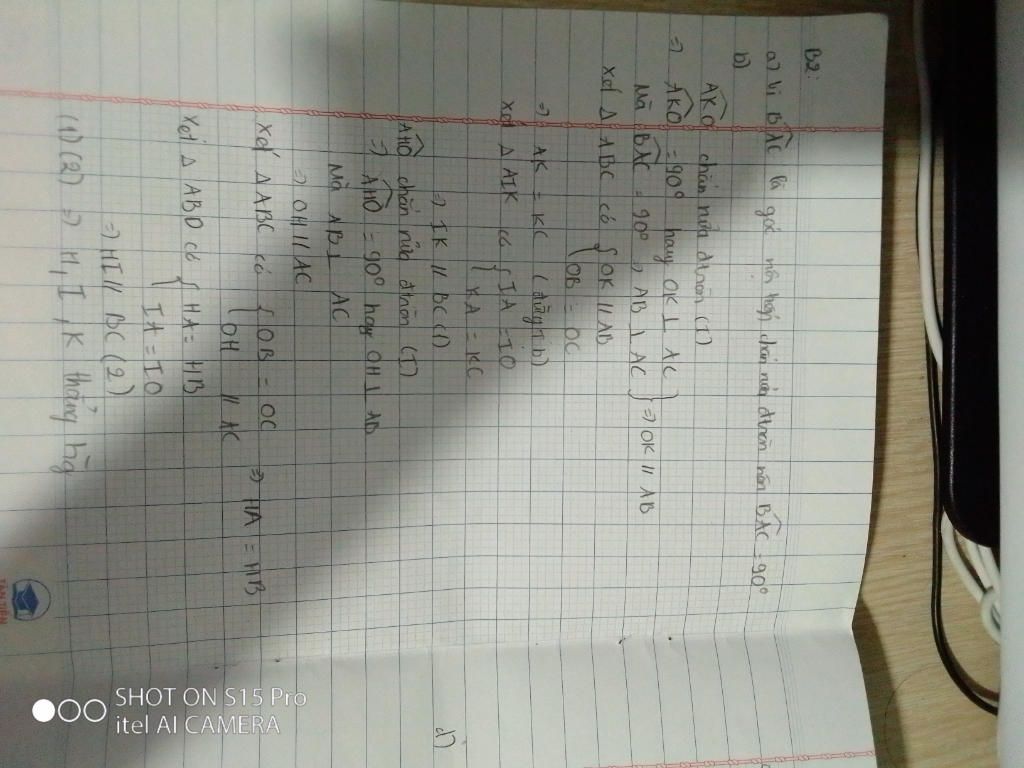 B2:
a) Vì BAC là góc nội tiếp chắn nửa đtròn nên BAC = 90°
b)
AKO chắn nửa đtròn (I)
=> AKO = 90° hay OK ⊥ AC
Mà BAC = 90° => AB ⊥ AC } => OK // AB
Xét Δ ABC có { OK // AB
OB = OC
=> AK = KC (đlý tb)
Xét Δ AIK có { IA = IO
KA = KC
=> IK // BC (1)
AHO chắn nửa đtròn (I)
=> AHO = 90° hay OH ⊥ AB
Mà AB ⊥ AC
=> OH // AC
Xét Δ ABC có { OB = OC => HA = HB
OH // AC
Xét Δ ABO có { HA = HB
IA = IO
=> HI // BC (2)
(1)(2) => H, I, K thẳng hg
d)
SHOT ON S15 Pro
itel AI CAMERA